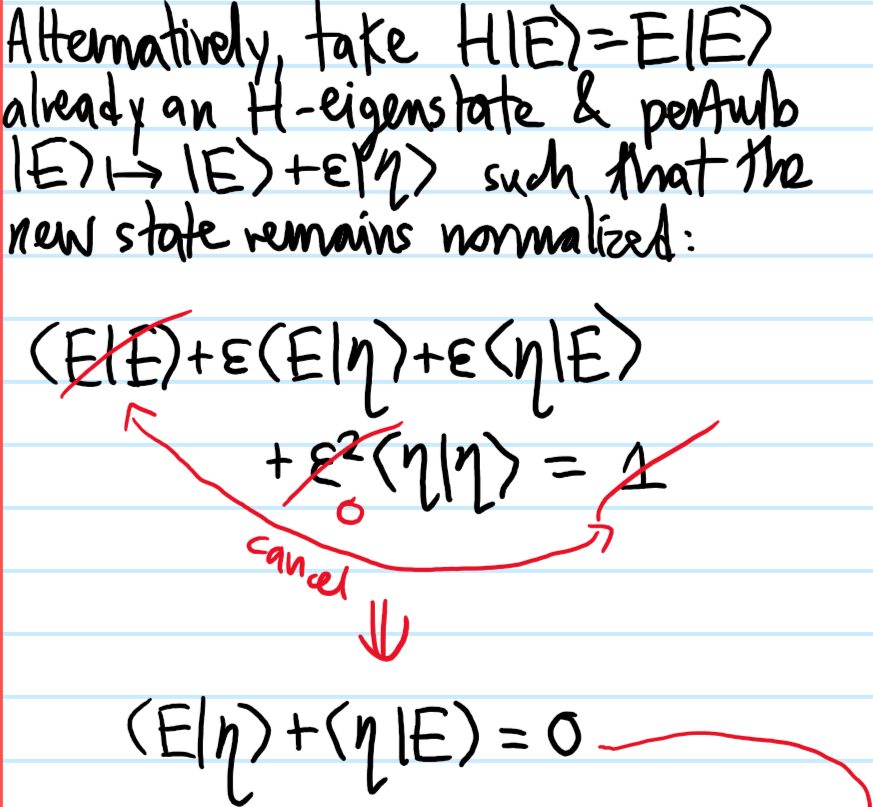 Alternatively, take H|E⟩=E|E⟩
already an H-eigenstate & perturb
|E⟩↦|E⟩+ε|η⟩ such that the
new state remains normalized:
⟨E|E⟩+ε⟨E|η⟩+ε⟨η|E⟩
+ ε²⟨η|η⟩ = 1
0
cancel
⇓
⟨E|η⟩+⟨η|E⟩=0